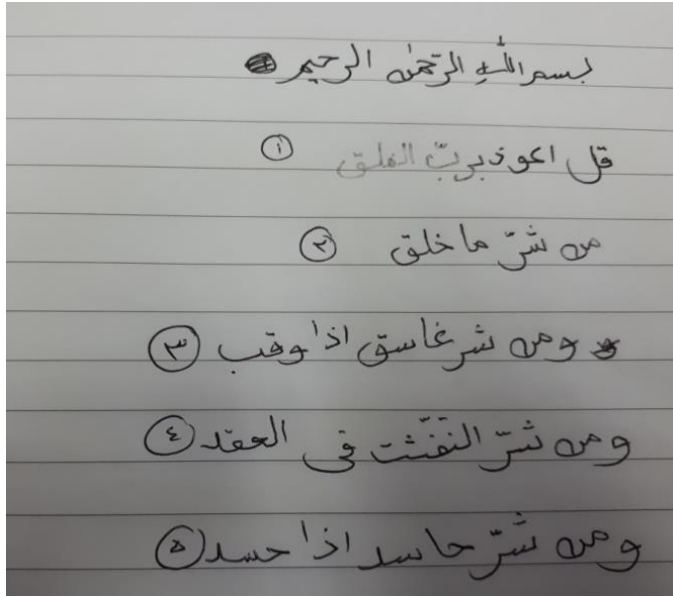 بسم اللّٰهِ الرّحمٰن الرحيم
قل اعوذ بربّ الفلق ١
من شرّ ما خلق ٢
ومن شر غاسق اذا وقب ٣
ومن شرّ النّفّثت فى العقد ٤
ومن شرّ حاسد اذا حسد ٥